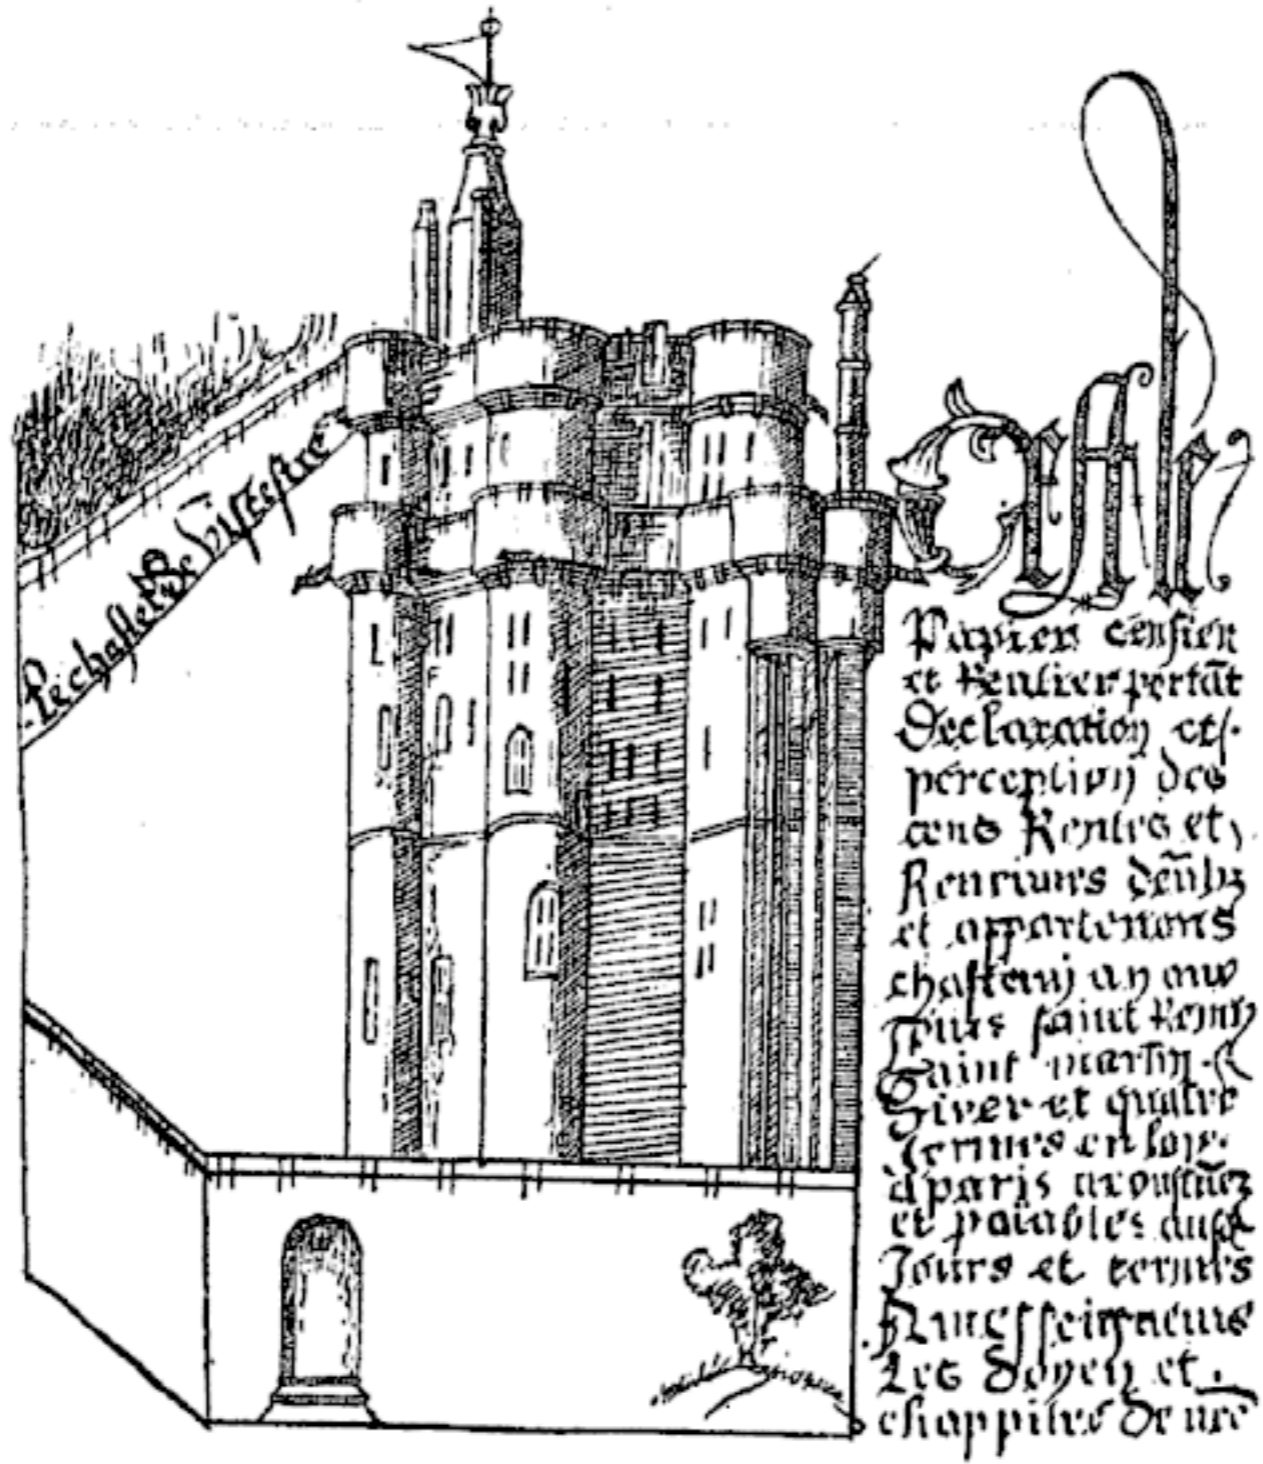 Le chastel de Bissestre
Papier censier
et Rentier portāt
Declaration et
perception des
cens Rentes et
Revenues
et appartenans
chascun an aux
Jours saint Remy
Saint martin
Diver et quatre
Termes en lan
a paris acoustumez
et paiables ausd
Jours et termes
A messeigneurs
Les Doyen et
chappitre de nrē